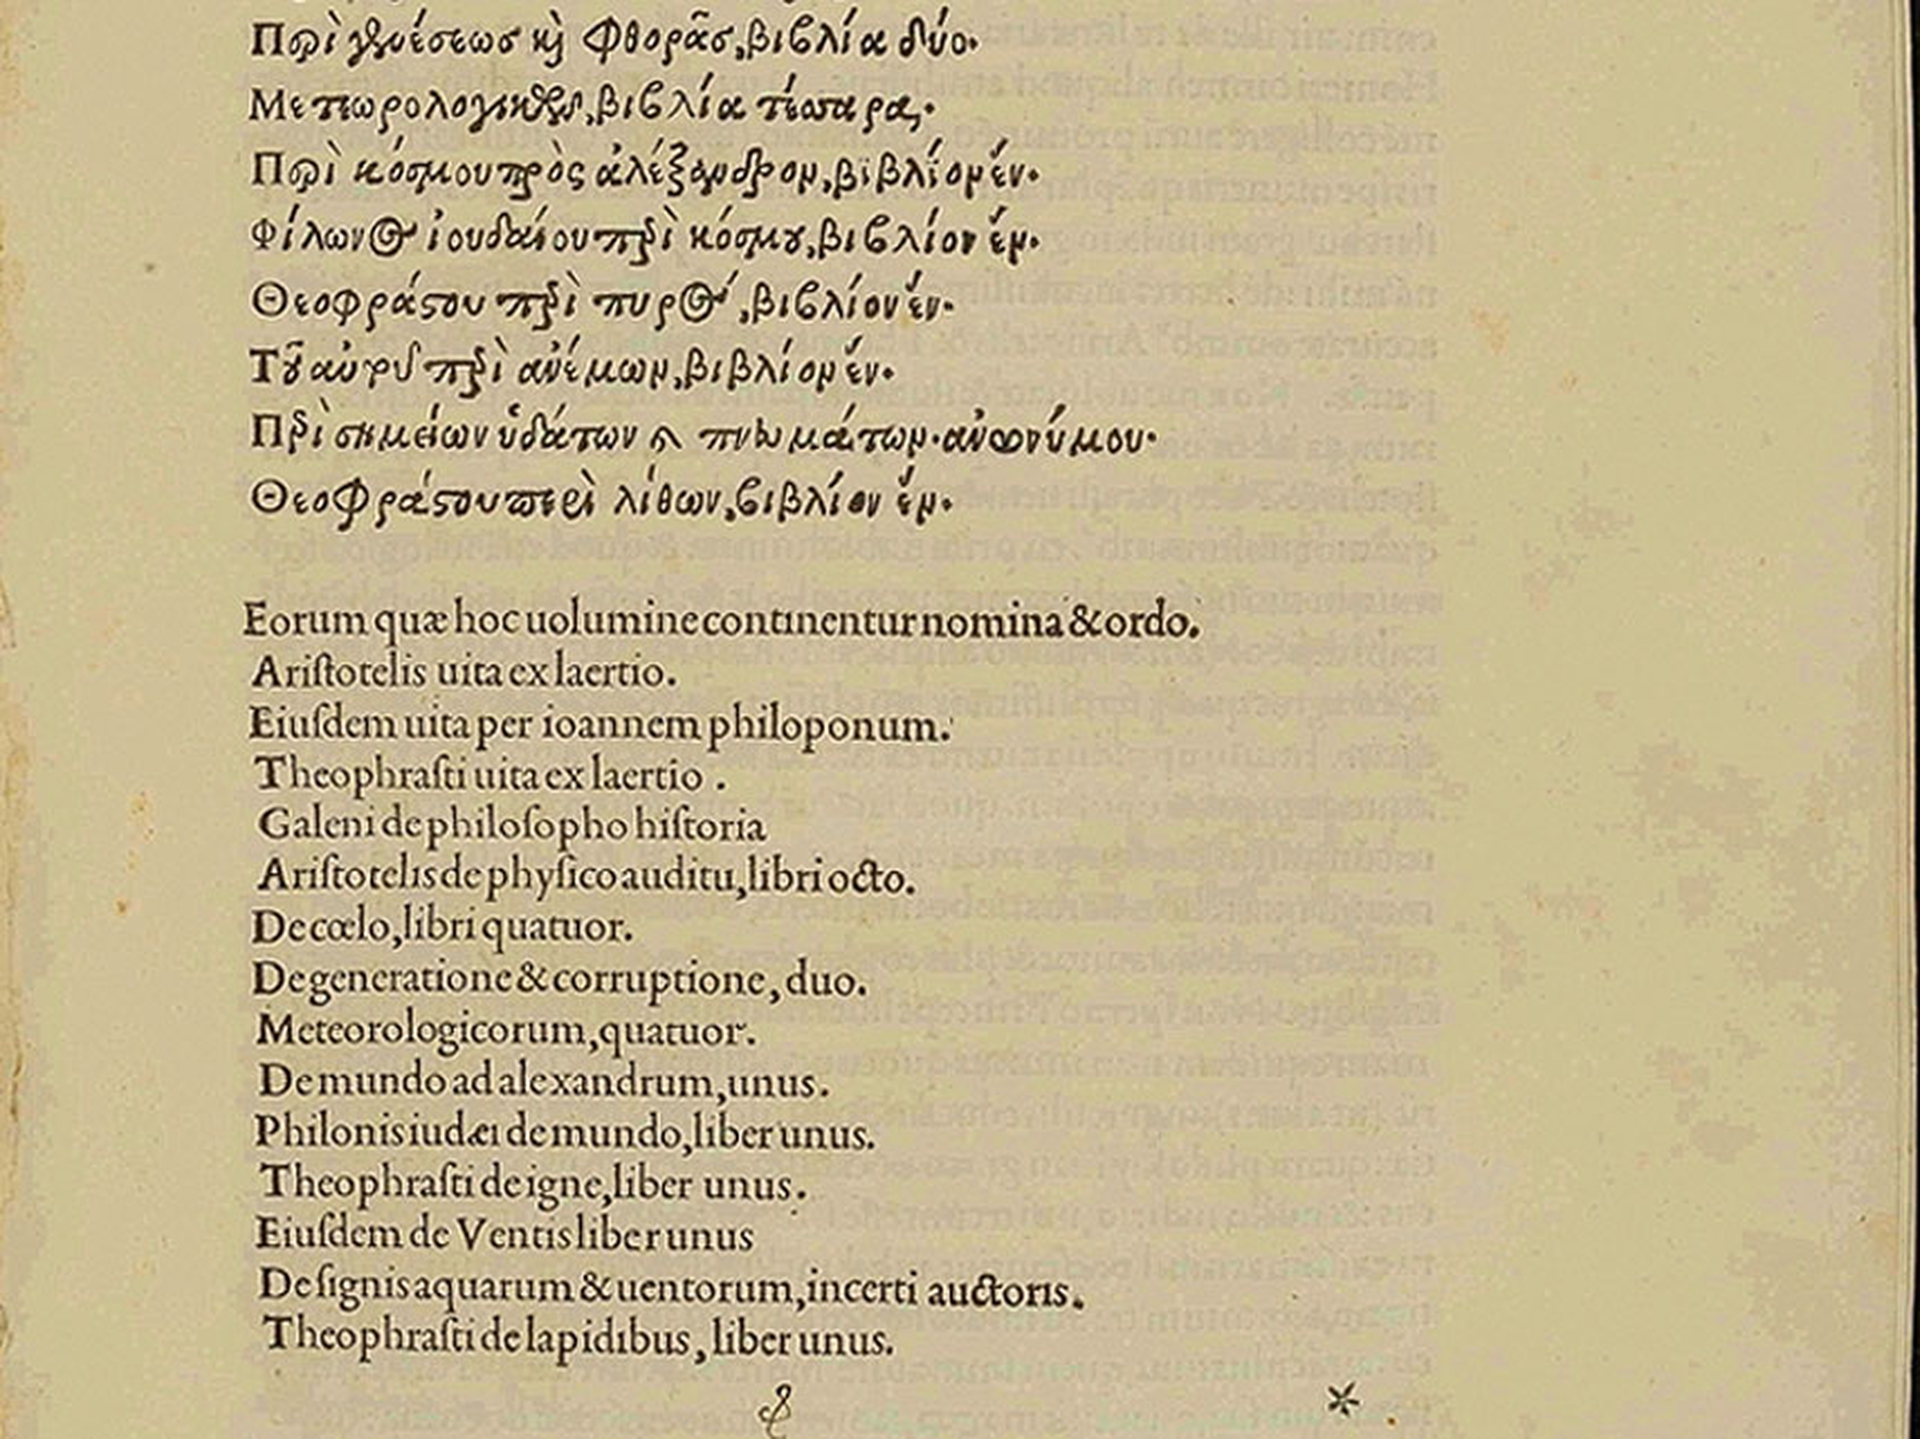 Περὶ γενέσεως καὶ Φθορᾶσ, βιβλία δύο.
Μετεωρολογικῶν, βιβλία τέσσαρα.
Περὶ κόσμου πρὸς ἀλέξανδρον, βιβλίον ἕν.
Φίλωνος ἰουδαίου περὶ κόσμου, βιβλίον ἕν.
Θεοφράστου περὶ πυρός, βιβλίον ἕν.
Τοῦ αὐτοῦ περὶ ἀνέμων, βιβλίον ἕν.
Περὶ σημείων ὑδάτων καὶ πνευμάτων. ἀνωνύμου.
Θεοφράστου περὶ λίθων, βιβλίον ἕν.
Eorum quæ hoc uolumine continentur nomina & ordo.
Ariſtotelis uita ex laertio.
Eiuſdem uita per ioannem philoponum.
Theophraſti uita ex laertio .
Galeni de philoſopho hiſtoria
Ariſtotelis de phyſico auditu, libri octo.
De cœlo, libri quatuor.
De generatione & corruptione, duo.
Meteorologicorum, quatuor.
De mundo ad alexandrum, unus.
Philonis iudæi de mundo, liber unus.
Theophraſti de igne, liber unus.
Eiuſdem de Ventis liber unus
De ſignis aquarum & uentorum, incerti auctoris.
Theophraſti de lapidibus, liber unus.
&
*